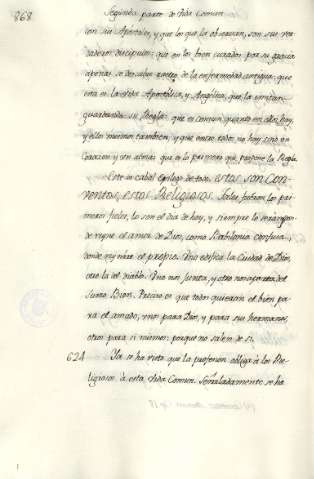 868
Segunda parte de Vida Comun.
con sus Apostoles, y que los que la observan, son sus ver-
daderos discipulos: que en los bien curados por su gracia
apenas se descubre rastro de la enfermedad antigua: que
esta es la Vida Apostolica, y Angelica, que la imitan
guardando su Regla: que es comun quanto en ellos hay,
y ellos mismos tambien, y que entre todos no hay sino un
Corazon y un alma: que es lo primero que propone la Regla.
Este es cabal Epilogo de todo: estos son Con-
ventos, estos Religiosos. Tales fueron los pri-
meros fieles, lo son el dia de hoy, y siempre lo seran
de reyne el amor de Dios, como Babilonia confusa,
donde reynare el propio. Uno edifica la Ciudad de Dios,
otro la del diablo. Uno nos junta, y otro nos aparta del
Sumo Bien. Preciso es que todos quieran el bien pa-
ra el amado, unos para Dios, y para sus hermanos,
otros para si mismos: porque no salen de si.
624 Ya se ha visto que la profesion obliga à los Re-
ligiosos à esta Vida Comun. Señaladamente se ha